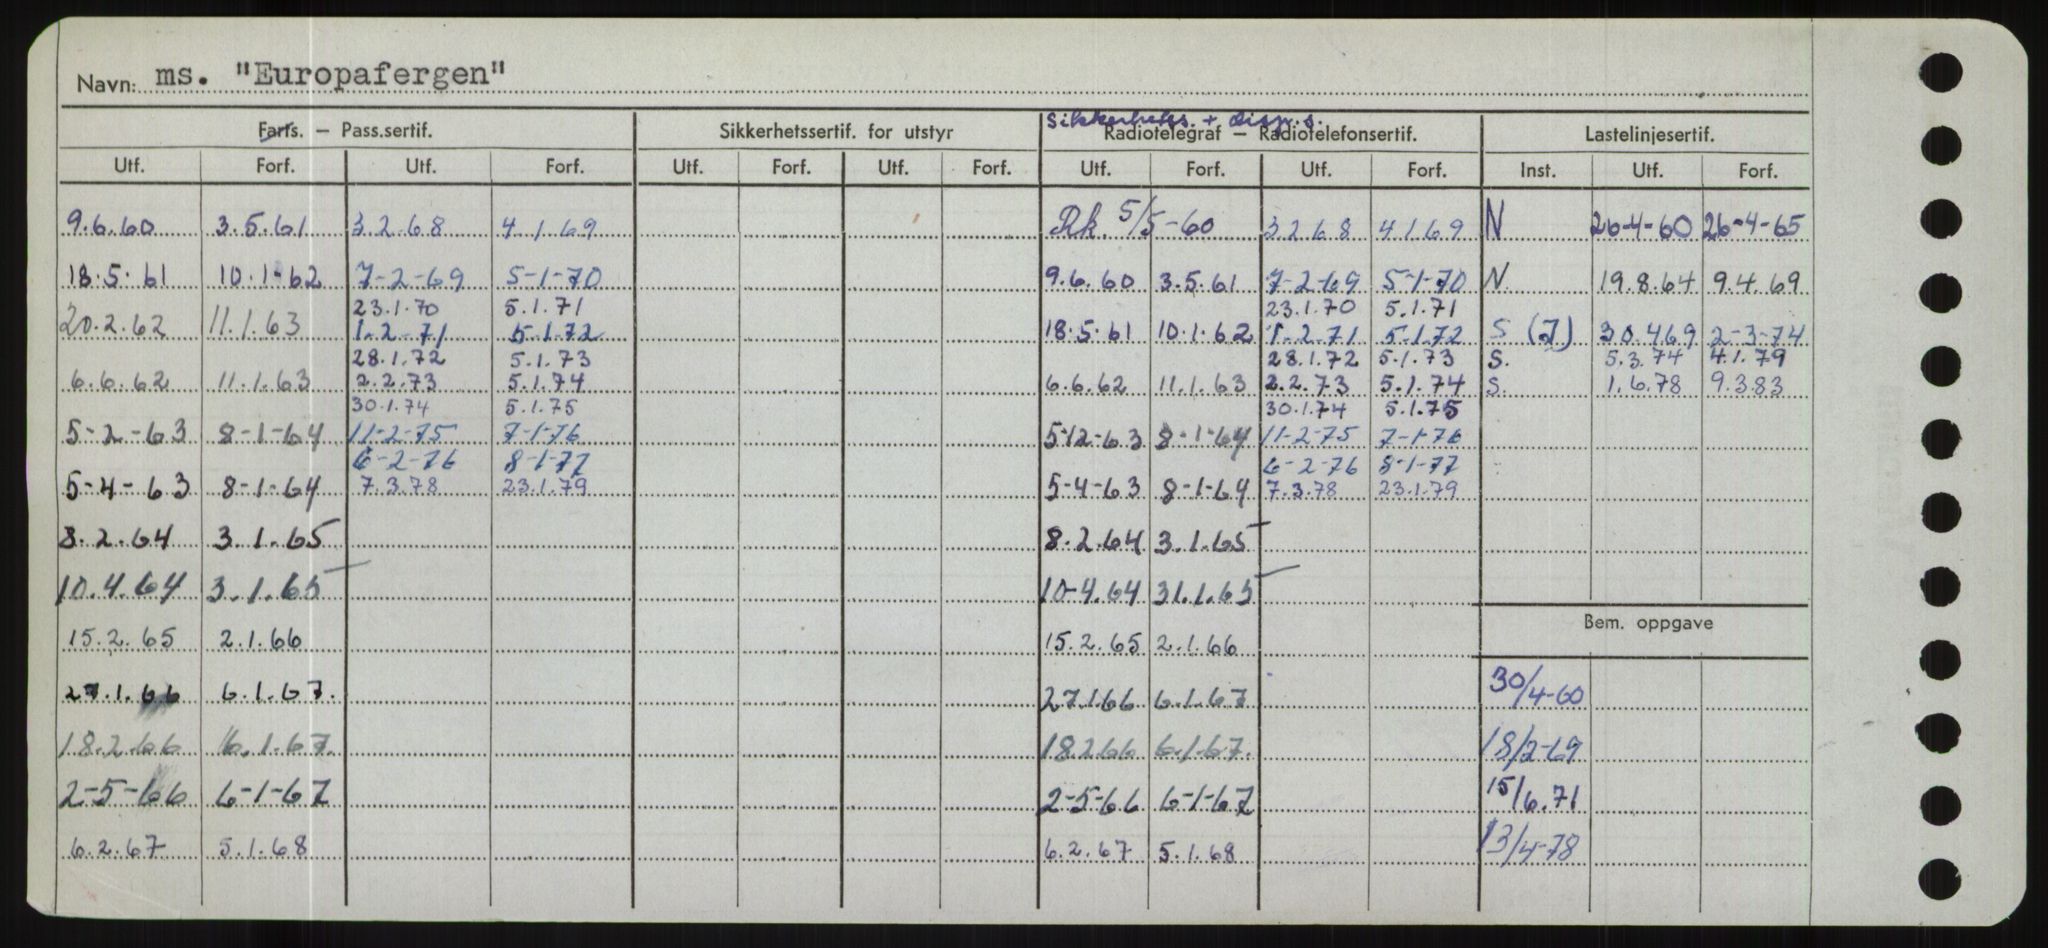 Navn: ms. "Europafergen"
Sikkerhets. + Disp. s.
Farts. – Pass.sertif. Sikkerhetssertif. for utstyr Radiotelegraf – Radiotelefonsertif. Lastelinjesertif.
Utf. Forf. Utf. Forf. Utf. Forf. Utf. Forf. Utf. Forf. Utf. Forf. Inst. Utf. Forf.
9.6.60 3.5.61 3.2.68 4.1.69 Rk. 5/5-60 3.2.68 4.1.69 N 26-4-60 26-4-65
18.5.61 10.1-62 7-2-69 5-1-70 9.6.60 3.5.61 7-2-69 5-1-70 N 19.8.64 9.4.69
23.1.70 5.1.71 23.1.70 5.1.71
20.2.62 11.1.63 1.-2-71 5.1.72 18.5.61 10.1.62 1.-2.71 5.1.72 S (J) 30.4.69 2-3-74
28.1.72 5.1.73 28.1.72 5.1.73 S. 5.3.74 4.1.79
6.6.62 11.1.63 2.2.73 5.1.74 6.6.62 11.1.63 2.2.73 5.1.74 S. 1.6.78 9.3.83
30.1.74 5.1.75 30.1.74 5.1.75
5-2-63 8-1-64 11-2-75 7-1-76 5-12-63 8-1-64 11-2-75 7-1-76
6-2-76 8-1-77 6-2-76 8-1-77
5-4-63 8-1-64 7.3.78 23.1.79 5-4-63 8-1-64 7.3.78 23.1.79
8.2.64 3.1.65 8.2.64 3.1.65
10.4.64 3.1.65 10-4.64 31.1.65
Bem. oppgave
15.2.65 2.1.66 15.2.65 2.1.66
27.1.66 6.1.67. 27.1.66 6.1.67 30/4-60
18.2.66 6.1.67. 18.2.66 6.1.67. 18/2-69
2-5-66 6-1-67 2-5-66 6-1-67 15/6.71
6.2.67 5.1.68 6.2.67 5.1.68 13/4-78